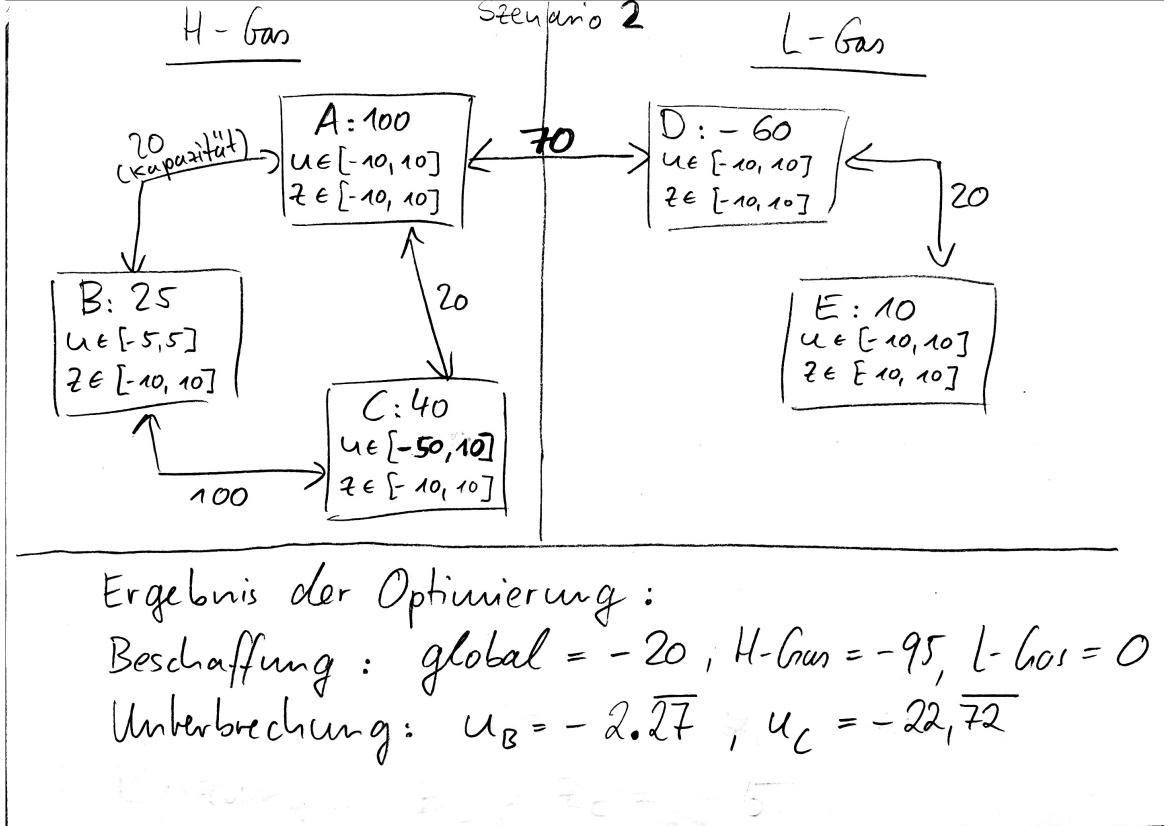 Szenario 2
H-Gas
L-Gas
20
(Kapazität)
A: 100
u ∈ [-10, 10]
z ∈ [-10, 10]
70
D: - 60
u ∈ [-10, 10]
z ∈ [-10, 10]
20
B: 25
u ∈ [-5,5]
z ∈ [-10, 10]
20
E: 10
u ∈ [-10, 10]
z ∈ [ 10, 10]
C: 40
u ∈ [-50, 10]
z ∈ [- 10, 10]
100
Ergebnis der Optimierung:
Beschaffung: global = - 20, H-Gas = -95, L-Gas = 0
Unterbrechung: u_B = - 2.2̅7̅, u_C = - 22,7̅2̅